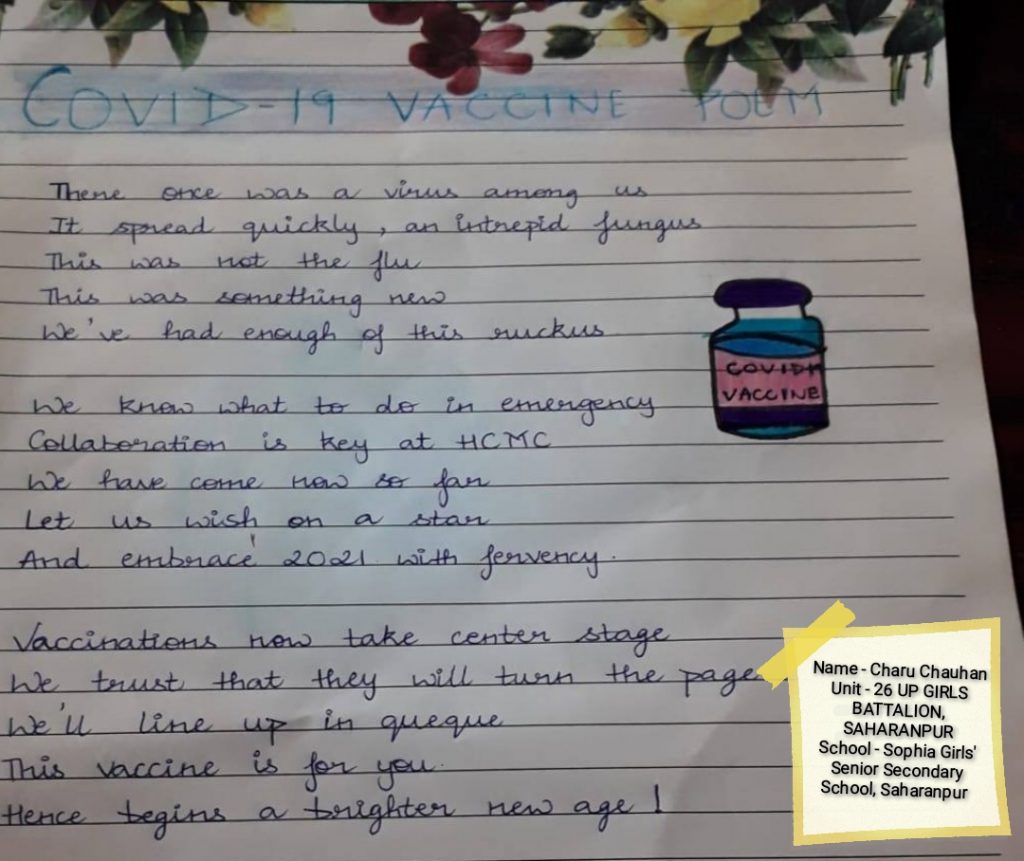 COVID-19 VACCINE POEM
There once was a virus among us
It spread quickly, an intrepid fungus
This was not the flu
This was something new
We've had enough of this ruckus
COVID19
VACCINE
We know what to do in emergency
Collaboration is key at HCMC
We have come now so far
Let us wish on a star
And embrace' 2021 with fervency.
Vaccinations now take center stage
We trust that they will turn the page
We'll line up in queque
This vaccine is for you.
Hence begins a brighter new age!
Name - Charu Chauhan
Unit - 26 UP GIRLS
BATTALION,
SAHARANPUR
School - Sophia Girls'
Senior Secondary
School, Saharanpur